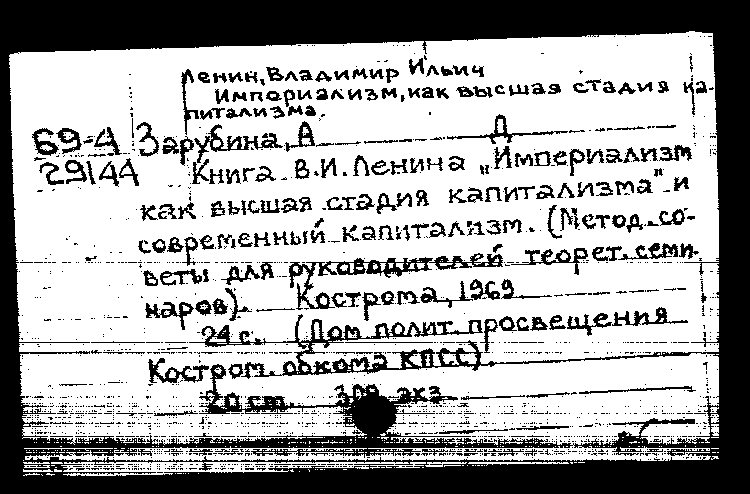 Ленин, Владимир Ильич
Империализм, как высшая стадия ка-
питализма.
69-4 Зарубина, А Д
29144 Книга В.И. Ленина „Империализм
как высшая стадия капитализма" и
современный капитализм. (Метод. со-
веты для руководителей теорет. семи-
наров). Кострома, 1969
24 с. (Дом полит. просвещения
Костром. обкома КПСС).
20 cm. 300 экз.